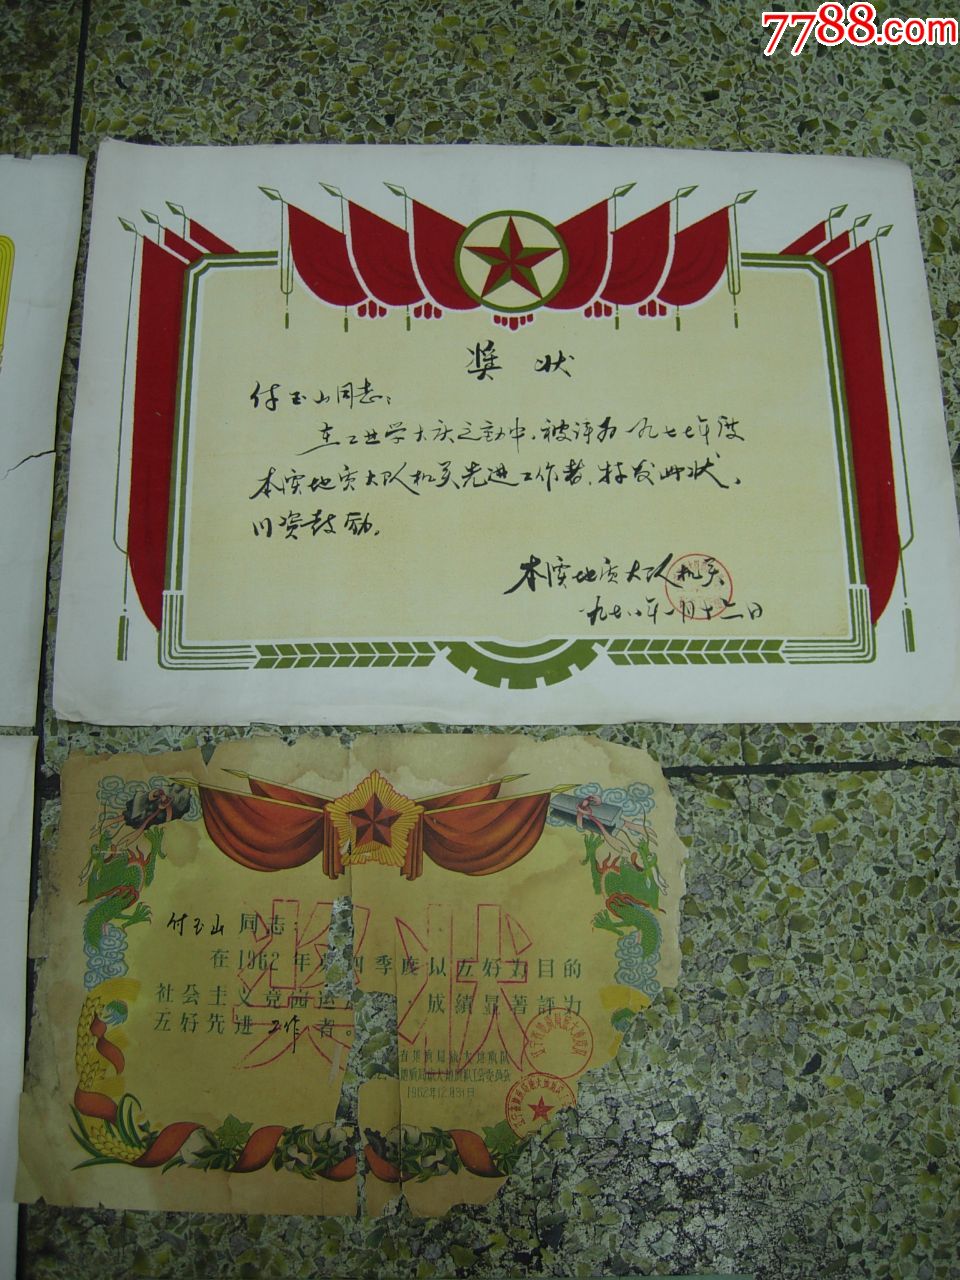 7788.com
奖状
付玉山同志：
在工业学大庆运动中，被评为一九七七年度
本溪地质大队机关先进工作者，特发此状，
以资鼓励。
本溪地质大队机关
一九七八年一月十二日
奖状
付玉山同志：
在1962年第四季度以五好为目的
社会主义竞赛运 成績显著評为
五好先进工作者。
1962年12月31日